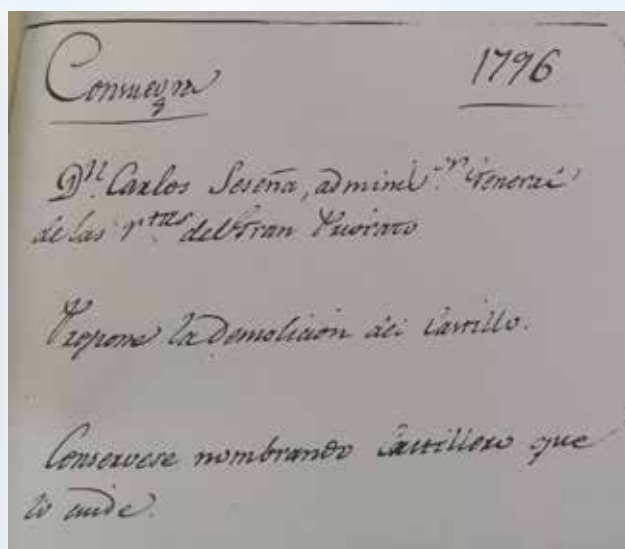 Consuegra 1796
Dⁿ Carlos Seseña, admini.ⁿ General
de las rᵗᵃˢ del Gran Priorato
Propone la Demolicion del Castillo.
Conservese nombrando Castillero que
lo cuide.